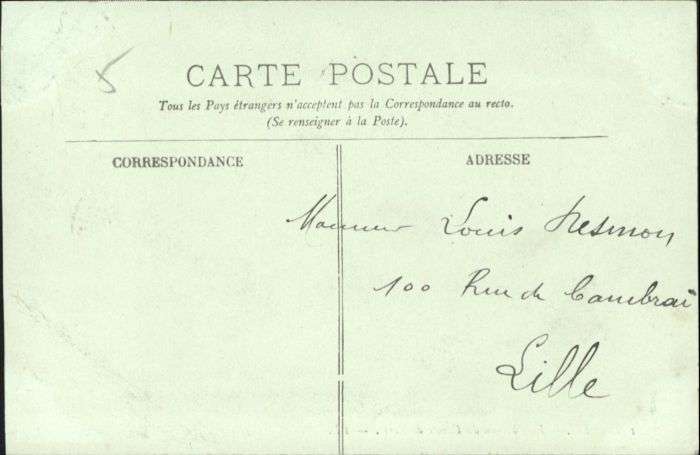 5
CARTE POSTALE
Tous les Pays étrangers n'acceptent pas la Correspondance au recto.
(Se renseigner à la Poste).
CORRESPONDANCE
ADRESSE
Monsieur Louis
100 Rue de Cambrai
Lille